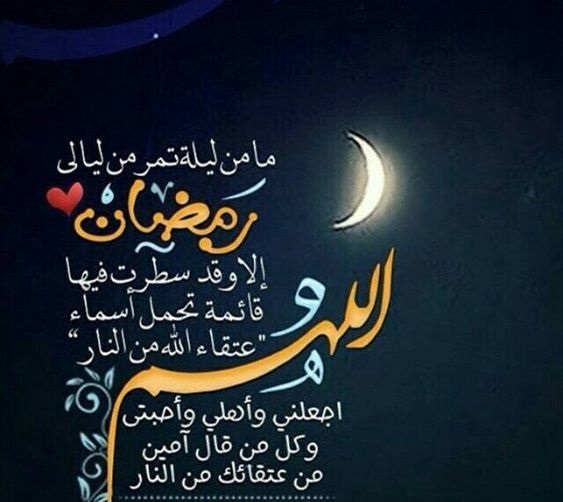 ما من ليلة تمر من ليالى
رمضان
إلا وقد سطرت فيها
قائمة تحمل أسماء
"عتقاء الله من النار"
اللهم
اجعلني وأهلي وأحبتى
وكل من قال آمين
من عتقائك من النار